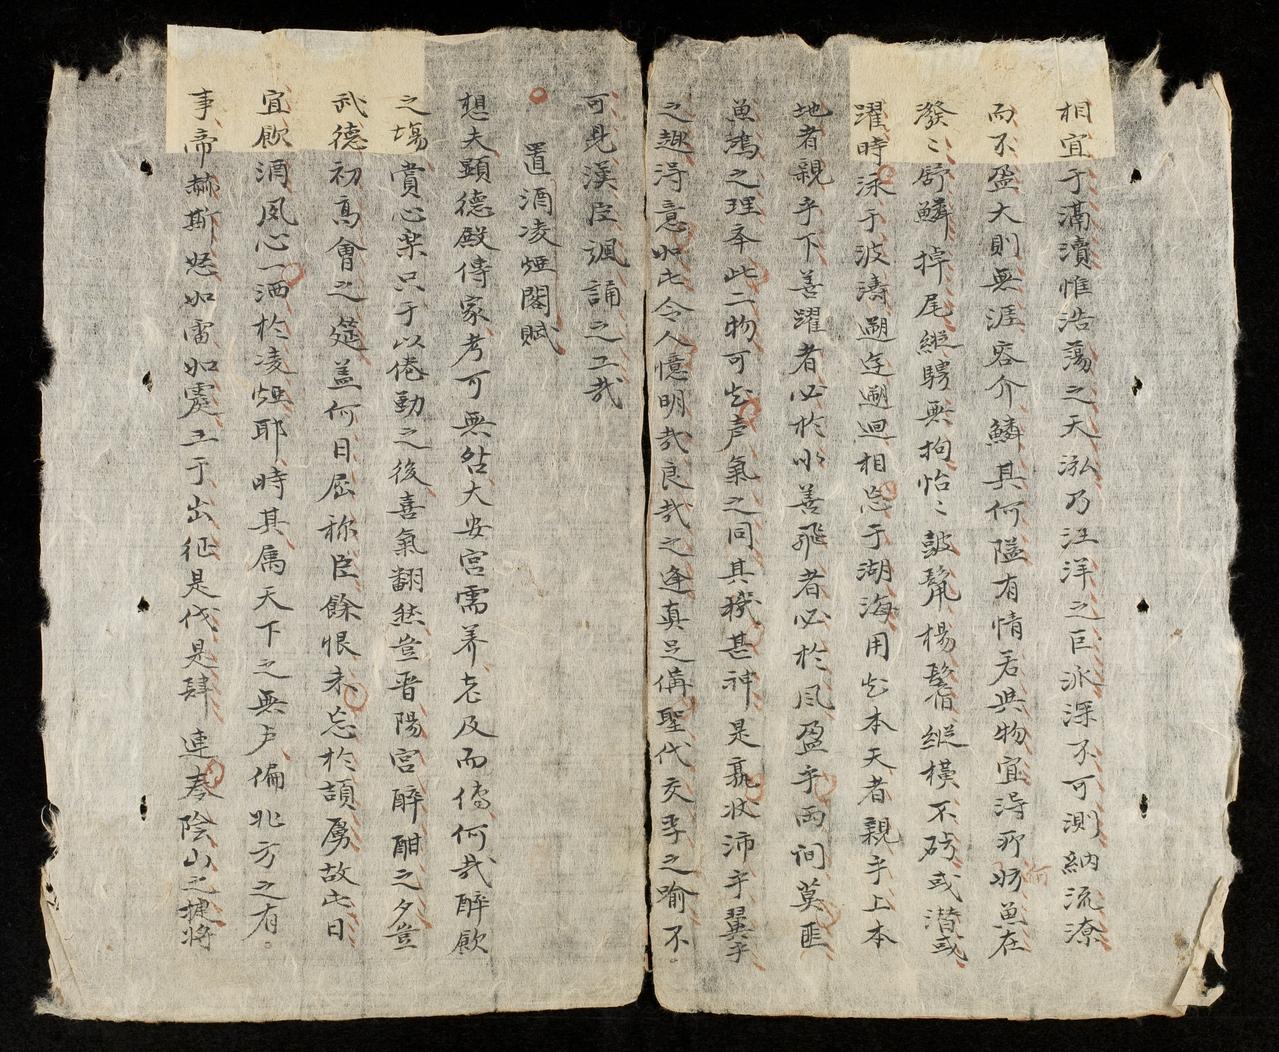 相宜于滆瀆惟浩蕩之天泓乃汪洋之巨派深不可測納流潦
而不盈大則無涯容介鱗其何隘有情若與物宜得所妨魚在
潑〻舒鱗掉尾縱騁無拘怡〻皷鬣楊鬐縱橫不碍或潛或
躍時泳于波濤遡迬遡迴相忘于湖海用知本天者親乎上本
地者親乎下善躍者必於水善飛者必於風盈乎两間莫匪
魚鴻之理夲此二物可知声氣之同其機甚神是氣狀沛乎翼乎
之趣淂意如此令人憶明哉良哉之逢真足俻聖代交孚之喻不
可見漢臣諷誦之工哉
置酒凌烟閣賦
想夫顕德殿傳家考可無咎大安宮需养老及而僑何哉醉飲
之塲賞心楽只于以倦勤之後喜氣翻然豈晋陽宮醉酣之夕豈
武德初高會之筵盖何日屈称臣餘恨未忘於頡勇故此日
宜飲酒夙心一洒於凌烟耶時其属天下之無戶偏北方之有
事帝赫斯怒如雷如霆王于出征是伐是肆連奏陰山之捷将